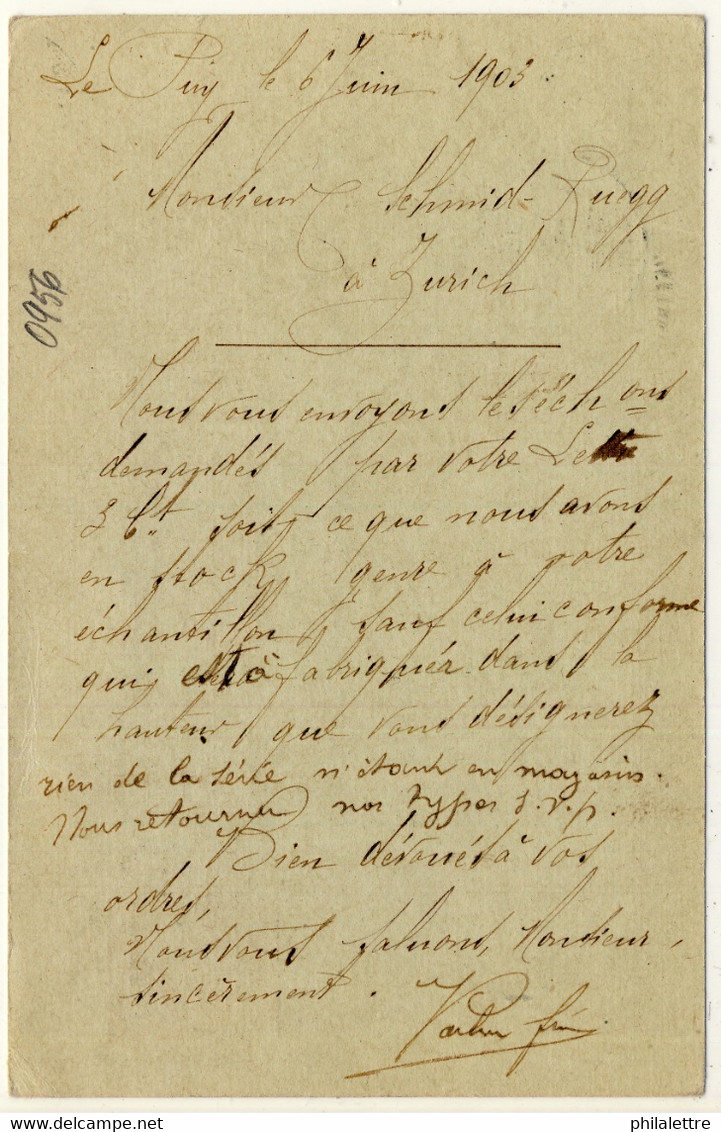 Le Puy le 6 Juin 1903.
Monsieur Schmid-Ruegg
à Zurich
0956
Nous vous envoyons les éch ons
demandés par votre Lettre
3 Ct soit ce que nous avons
en stock genre à votre
échantillon, sauf celui conforme
qui est à fabriquer dans la
hauteur que vous désignerez
rien de la série n'étant en magasin.
Nous retourner nos types s.v.p.
Bien dévoués à vos
ordres,
Nous vous saluons, Monsieur,
sincèrement.
philalettre